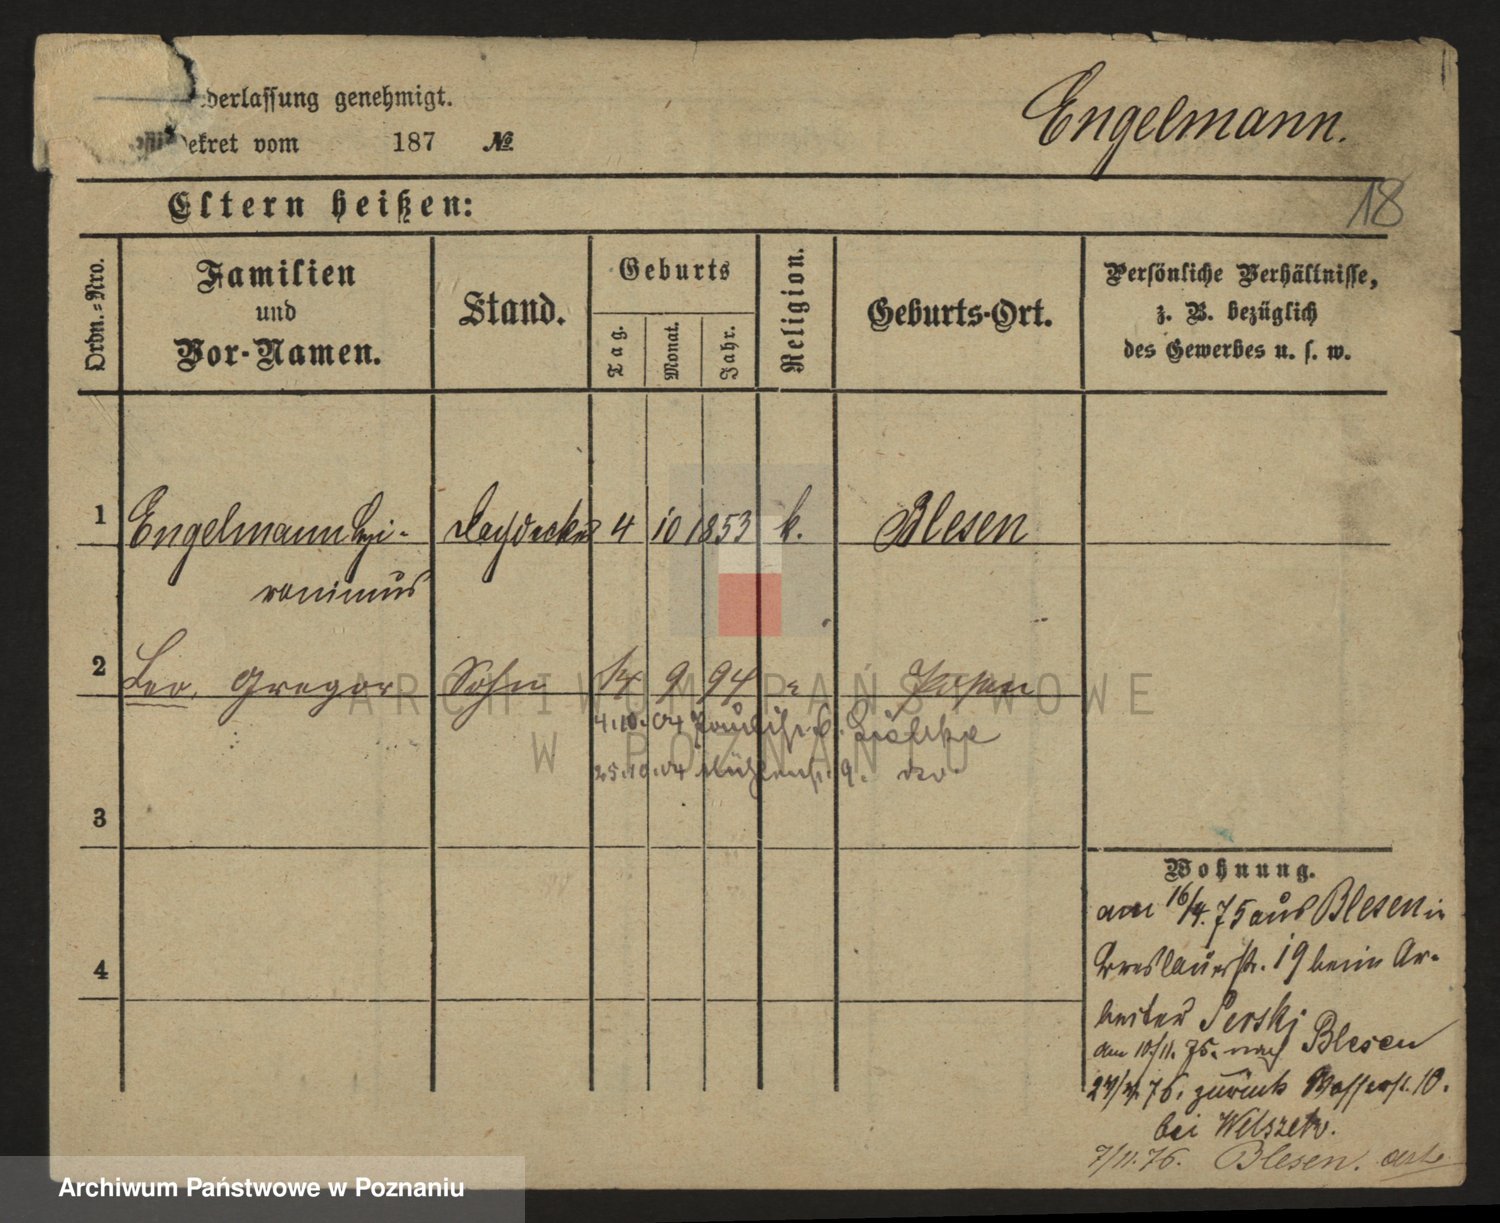 derlassung genehmigt.
Dekret vom 187 №
Engelmann.
18
Eltern heißen:
Ordn.-Nro.
Familien
und
Vor-Namen.
Stand.
Geburts
Tag.
Monat.
Jahr.
Religion.
Geburts-Ort.
Persönliche Verhältnisse,
z. B. bezüglich
des Gewerbes u. s. w.
1 Engelmann Hyi- Dachdecker 4 10 1853 k. Blesen
ronimus
2 Leo, Gregor Sohn 14 9 94 " Posen
ARCHIWUM PAŃSTWOWE
W POZNANIU
4.10.04
25.10.04 Mühlenstr. 9.
3
4
Wohnung.
am 16/4. 75 aus Blesen in
Breslauerstr. 19 beim Ar-
beiter Perski
am 10/11. 75. nach Blesen
24/4. 76. zurück Wasserstr. 10.
bei
7/11. 76. Blesen.
Archiwum Państwowe w Poznaniu